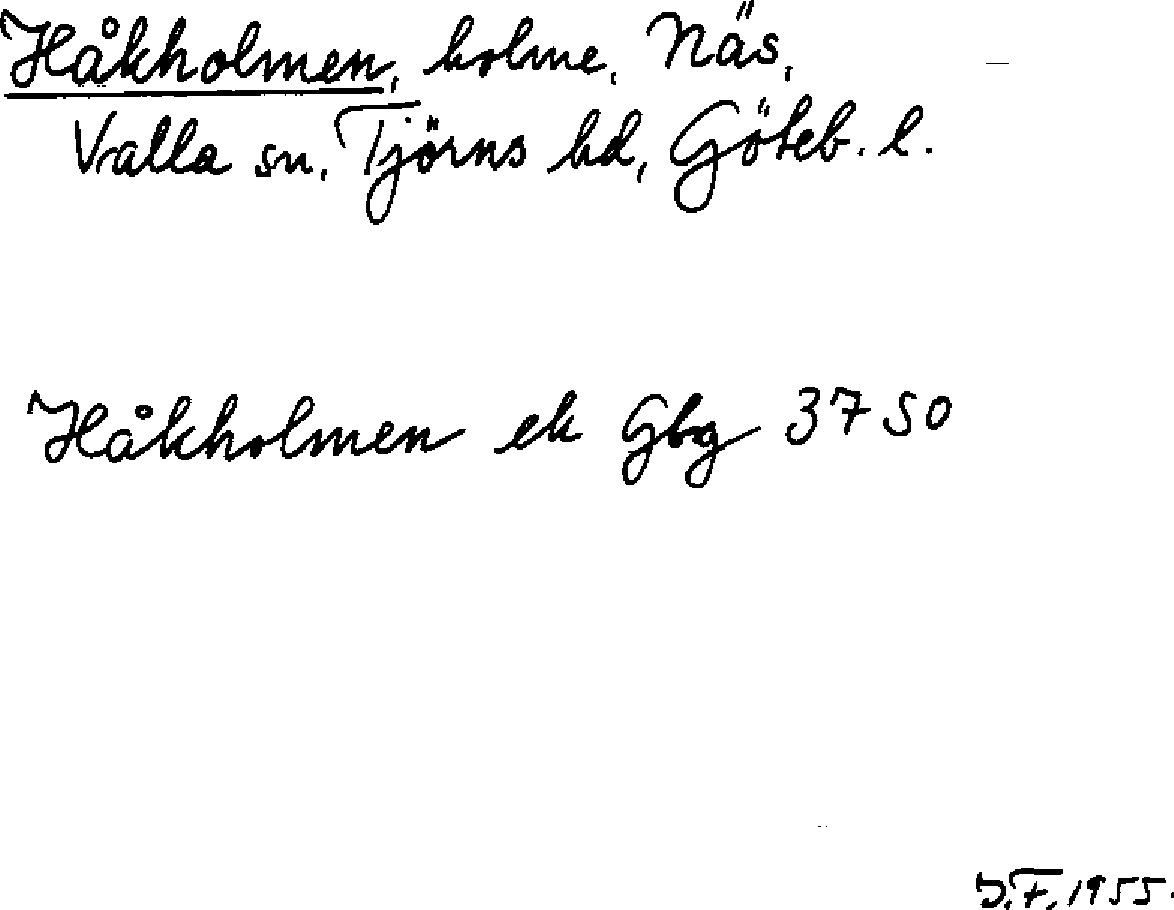 Håkholmen, holme, Näs,
Valla sn, Tjörns hd, Göteb. l.
Håkholmen ek Gbg 3750
D.F. 1955.